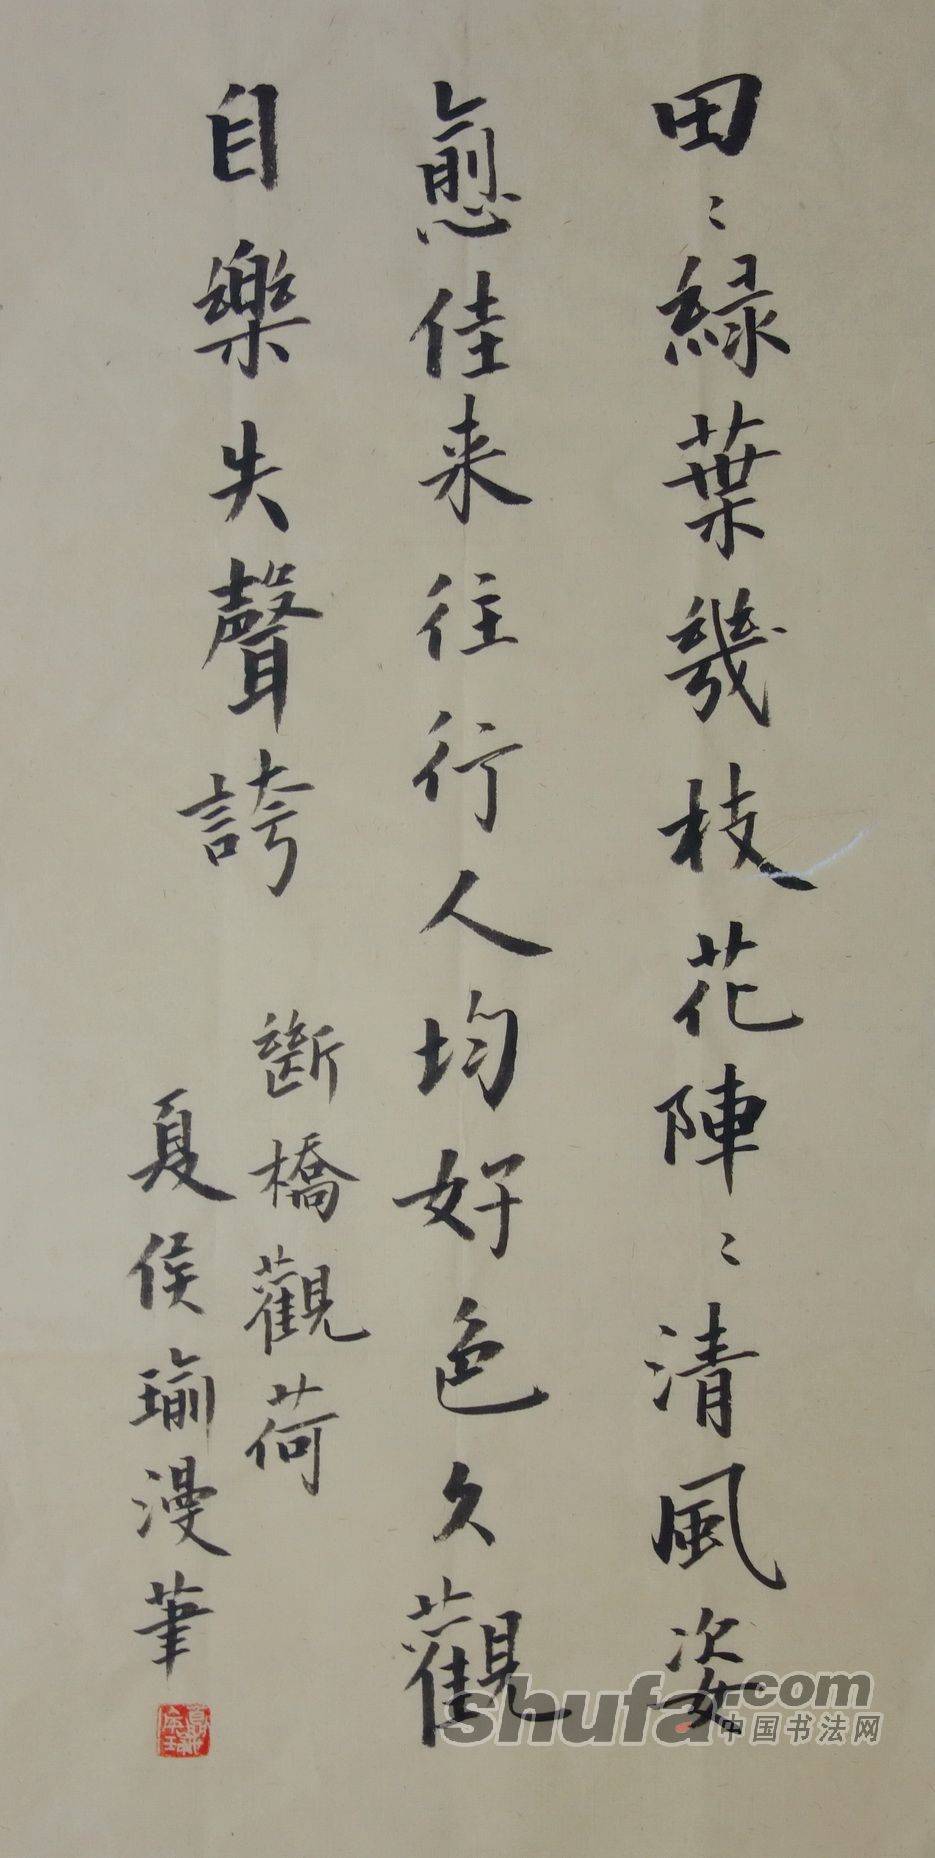 田〻綠葉幾枝花陣〻清風姿
愈佳来往行人均好色久觀
自樂失聲誇
斷橋觀荷
夏侯瑜漫筆
shufa.com
中国书法网